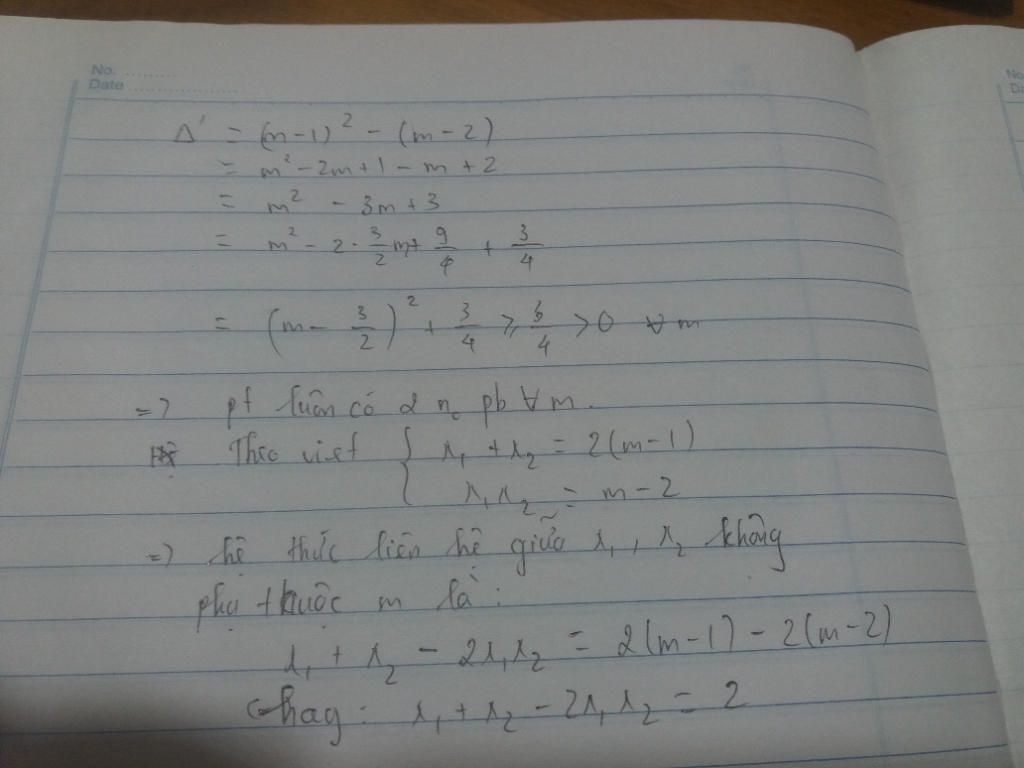 No. ............
Date ..................
Δ' = (m-1)² - (m-2)
= m² - 2m + 1 - m + 2
= m² - 3m + 3
= m² - 2·3/2 m + 9/4 + 3/4
= (m - 3/2)² + 3/4 ≥ 3/4 > 0 ∀ m
=> pt luôn có 2 no pb ∀ m.
Theo viet { x₁ + x₂ = 2(m-1)
x₁x₂ = m-2
=> hệ thức liên hệ giữa x₁, x₂ không
phụ thuộc m là:
x₁ + x₂ - 2x₁x₂ = 2(m-1) - 2(m-2)
hay: x₁ + x₂ - 2x₁x₂ = 2
No
Da